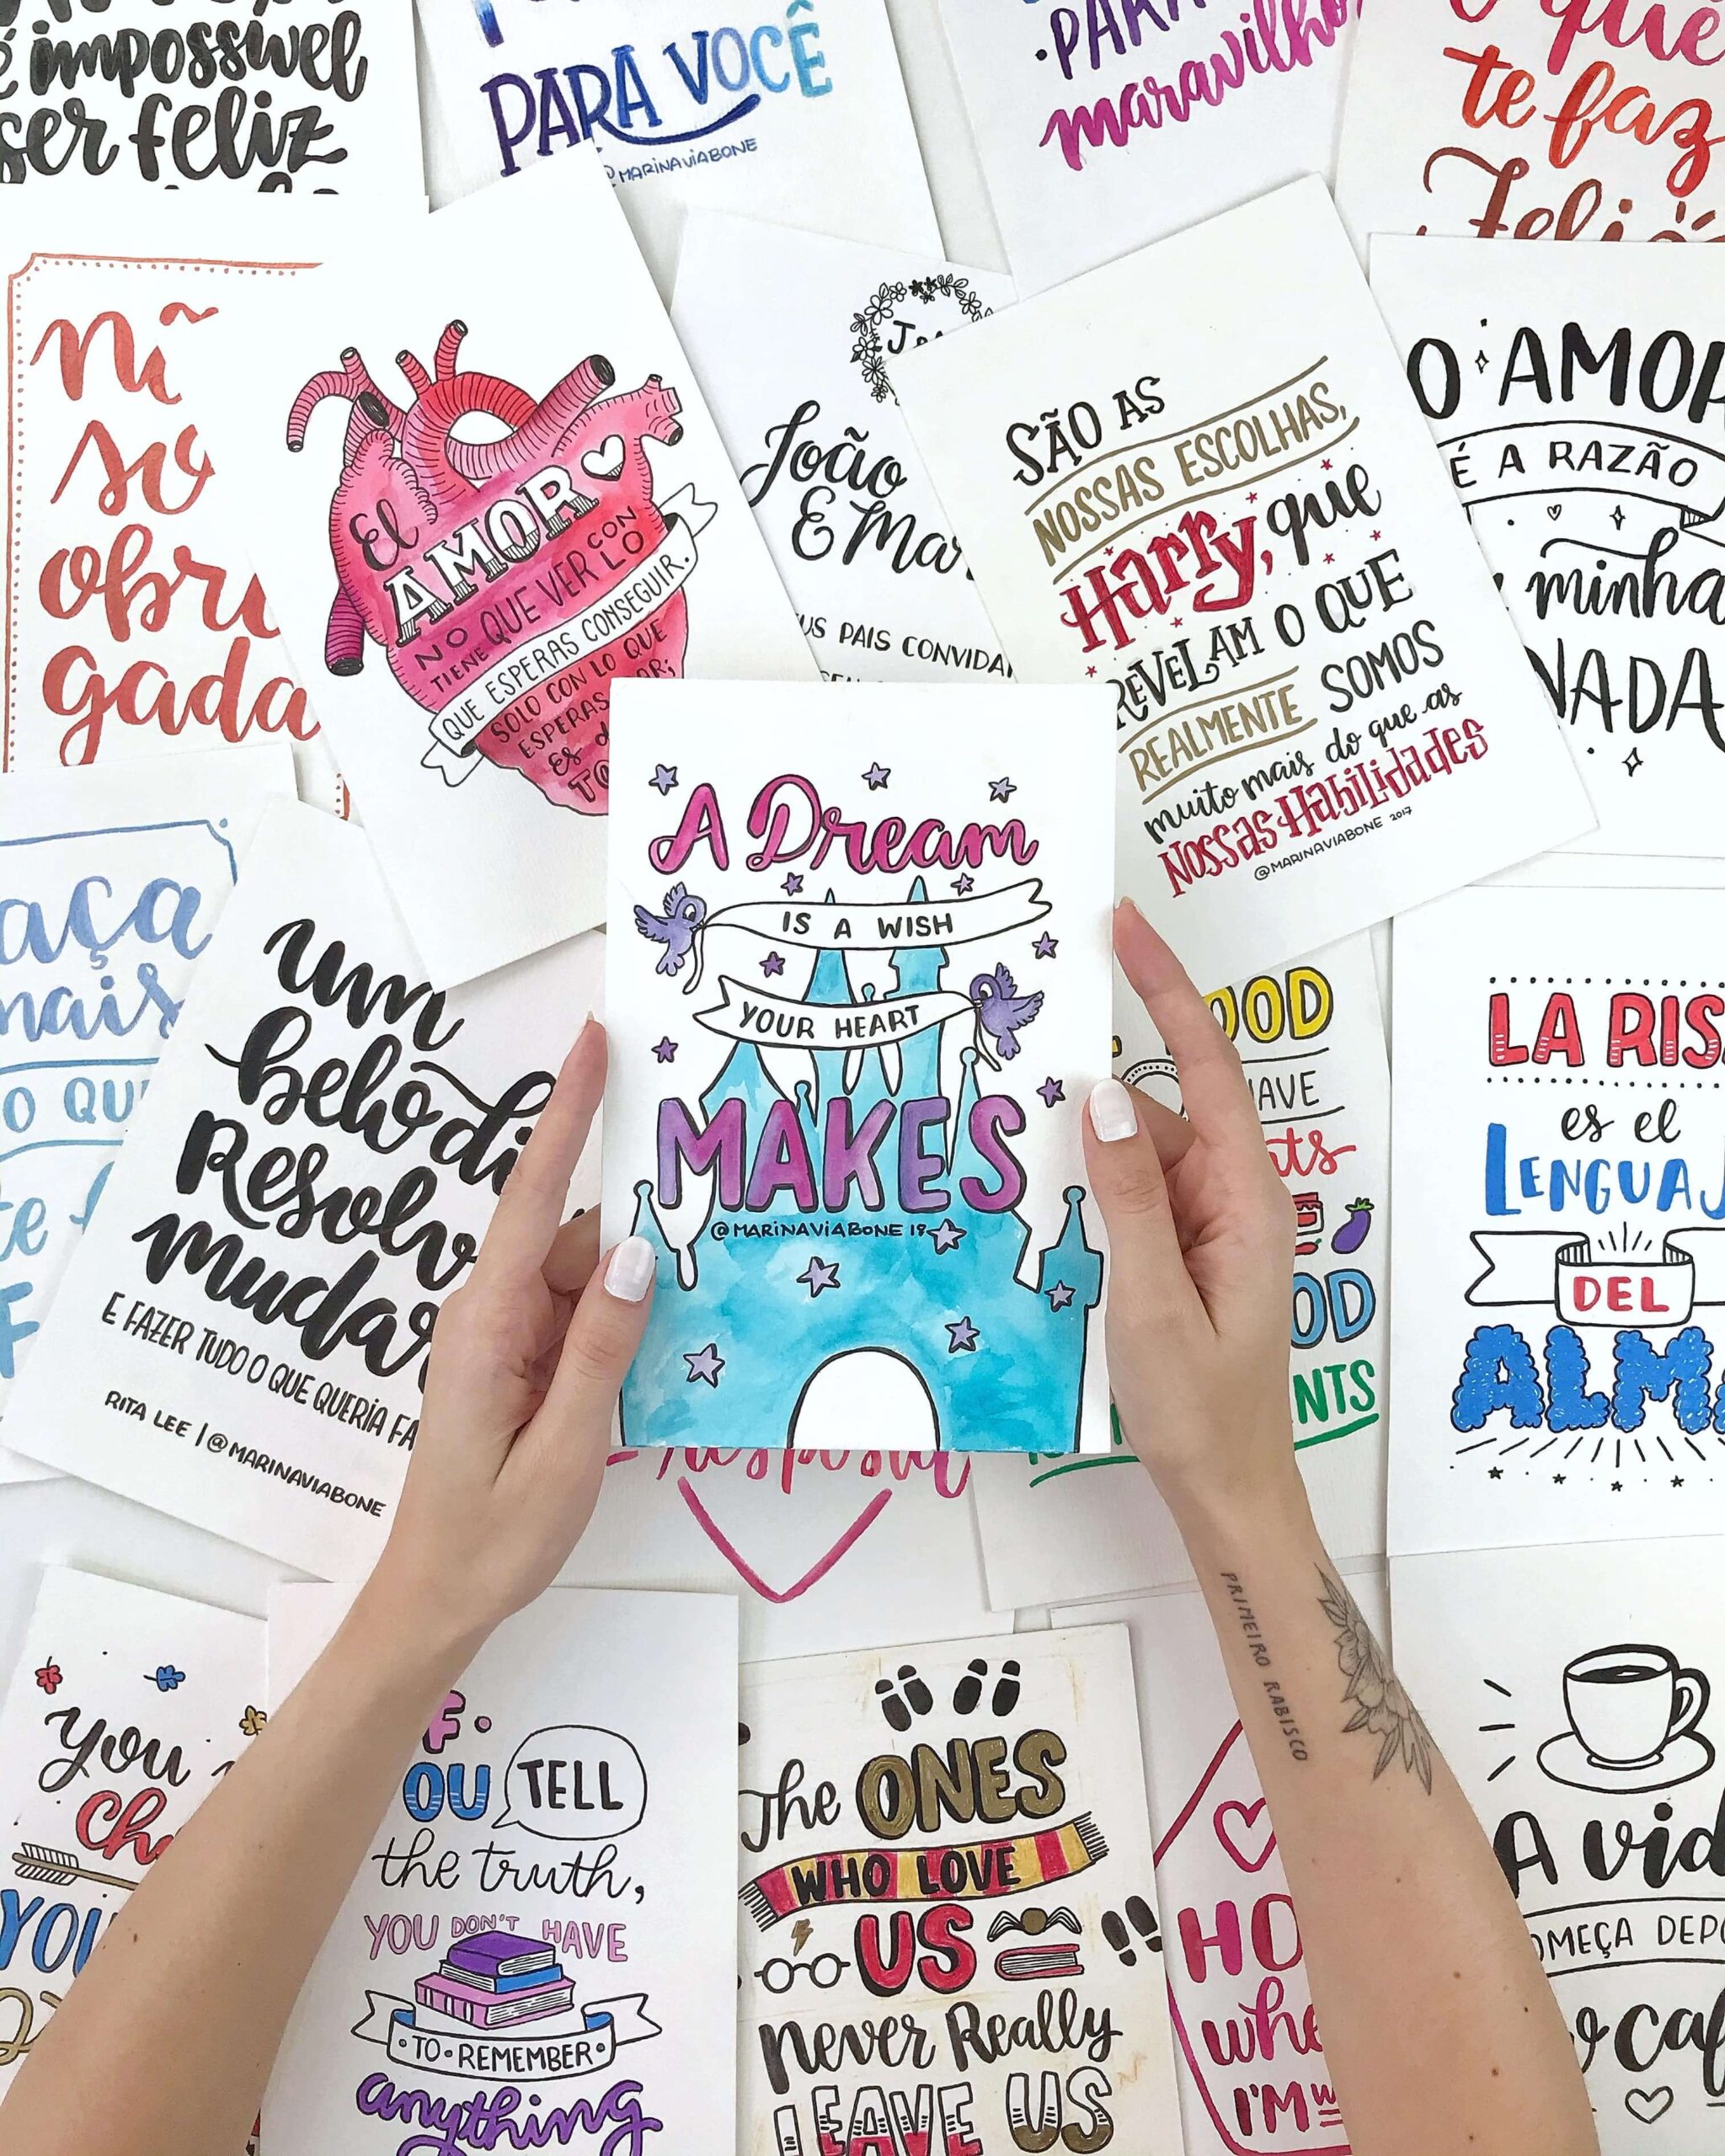 é impossível
ser feliz
PARA VOCÊ
@MARINAVIABONE
PARA
maravilho
que
te faz
ni
so
obri
gada
El
AMOR
NO
TIENE
QUE VER CON
LO
QUE ESPERAS CONSEGUIR.
SOLO CON LO QUE
ESPERAS
es
João
E Mar
PAIS CONVIDAM
SÃO AS
NOSSAS ESCOLHAS,
Harry, que
REVELAM O QUE
REALMENTE SOMOS
muito mais do que as
NOSSAS HabiLidades
@MARINAVIABONE 2017
O AMOR
É A RAZÃO
minha
A DREAM
IS A WISH
YOUR HEART
MAKES
@MARINAVIABONE 18
aça
mais
O QU
te
F
um
belo di
Resolv
mudar
E FAZER TUDO O QUE QUERIA FA
RITA LEE | @MARINAVIABONE
OOD
AVE
OD
NTS
LA RIS
es el
LENGUAJ
DEL
ALMA
PRIMEIRO RABISCO
you
ch
YOU
F.
OU TELL
the truth,
YOU DON'T HAVE
TO REMEMBER
anything
The ONES
WHO LOVE
US
Never Really
LEAVE US
HO
whe
I'M
A vid
OMEÇA DEPO
caf